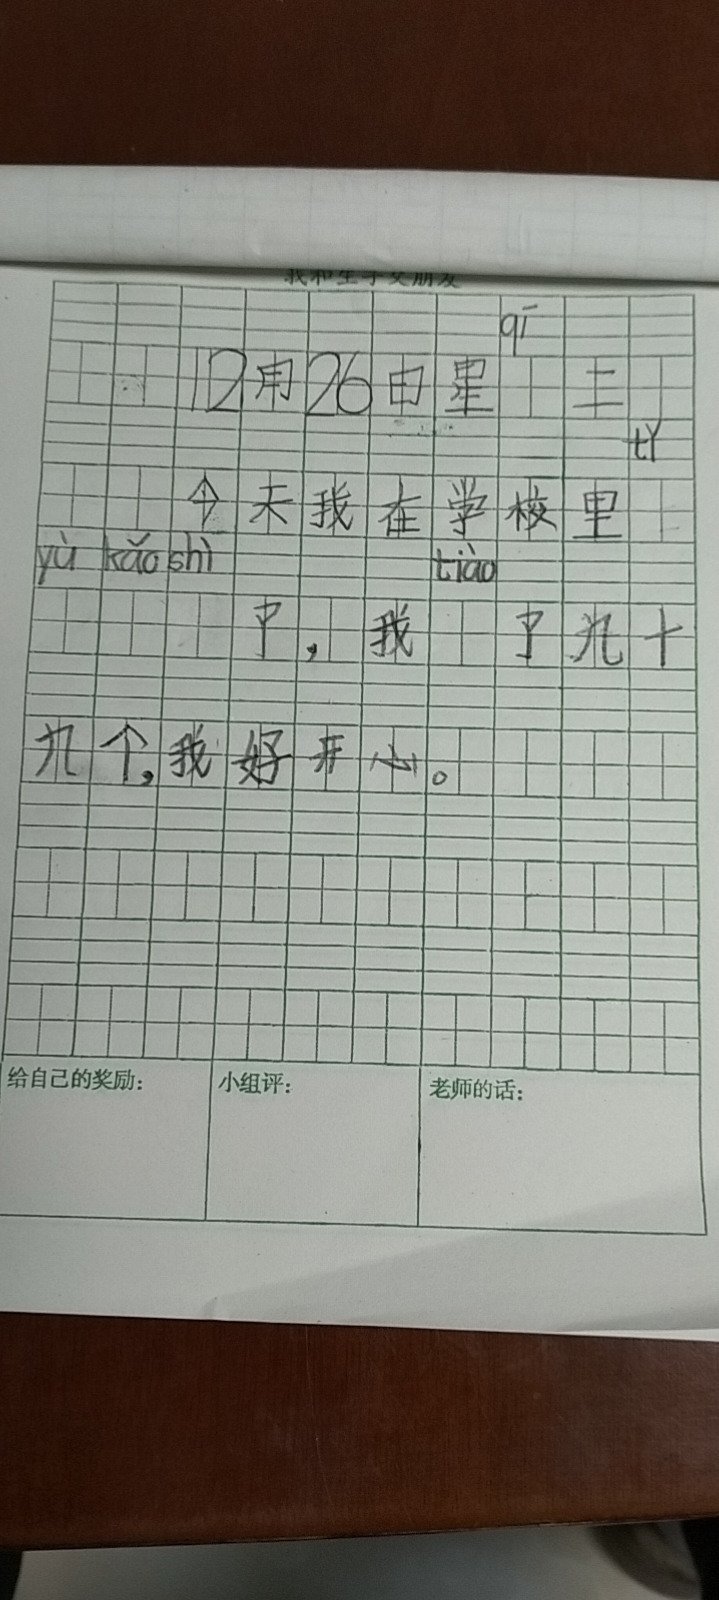 我和生字交朋友
qī
12月26日星 二
tǐ
今天我在学校里
yù kǎo shì tiào
了，我 了九十
九个，我好开心。
给自己的奖励： 小组评： 老师的话：